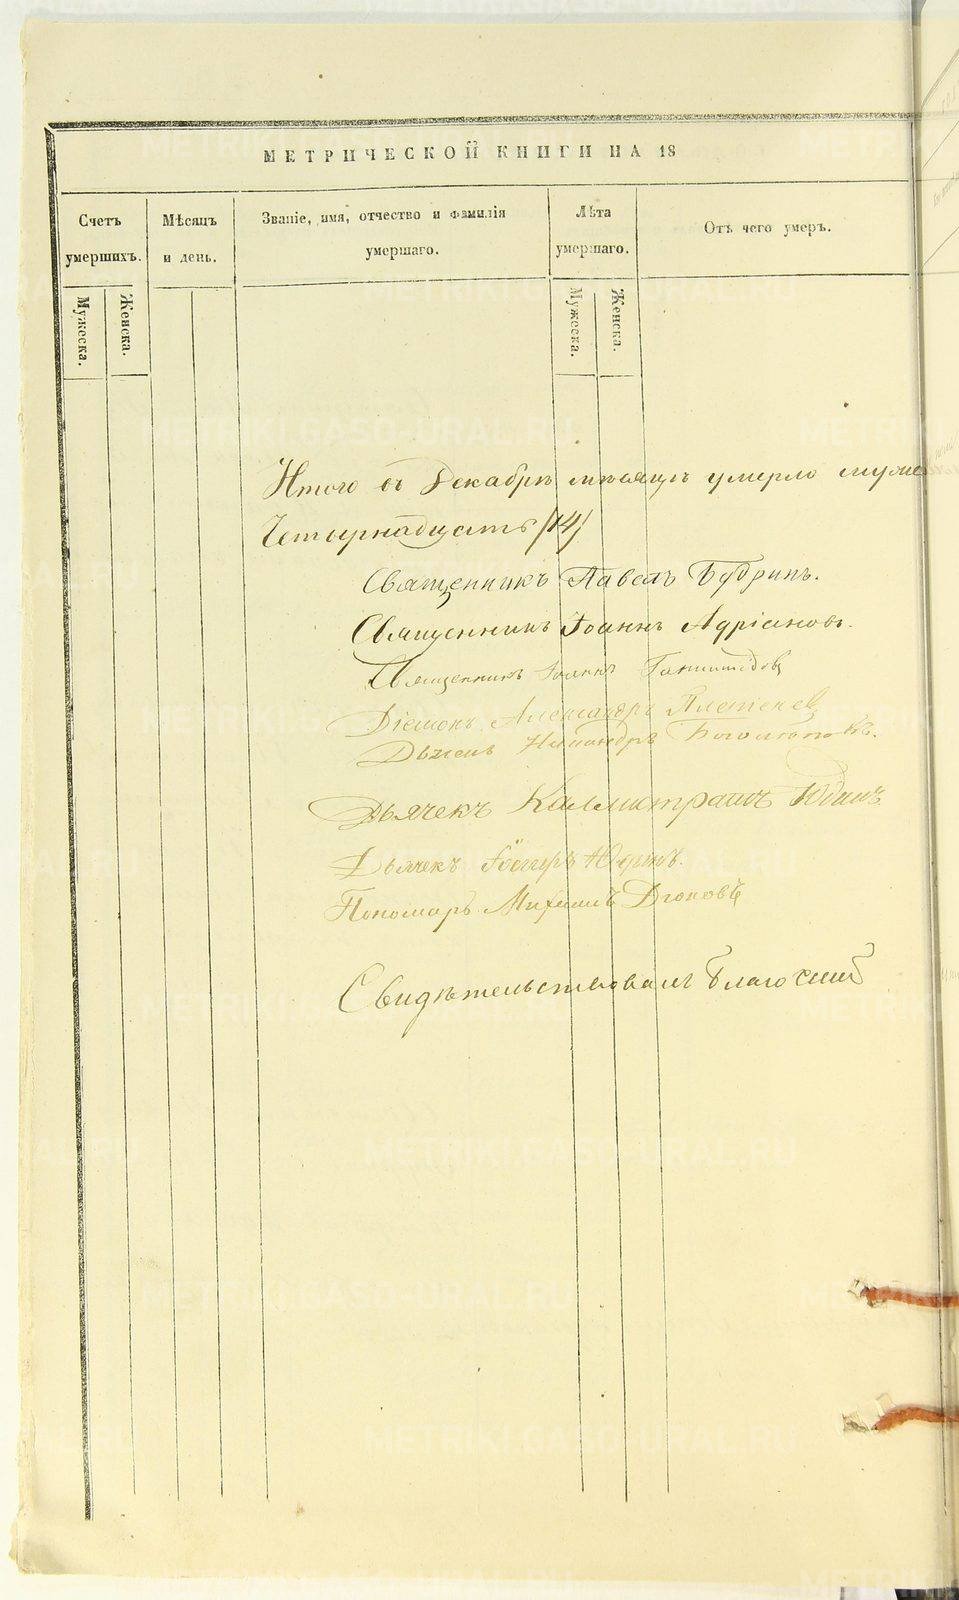 МЕТРИЧЕСКОЙ КНИГИ НА 18
Счетъ умершихъ.
Мѣсяцъ и день.
Званіе, имя, отчество и фамилія умершаго.
Лѣта умершаго.
Отъ чего умеръ.
Мужеска.
Женска.
Мужеска.
Женска.
Итого въ Декабрѣ мѣсяцѣ умерло муже
Четырнадцать (14)
Священникъ Павелъ Бубринъ.
Священникъ Іоаннъ Адріановъ.
Священникъ Іоаннъ
Діаконъ Александръ Плетенев
Діаконъ Никандръ Богомоловъ.
Дьячекъ Каллистратъ Юдинъ
Дьячекъ
Пономарь Михаилъ Дягоновъ
Свидѣтельствовалъ Благочин
METRIKI.GASO-URAL.RU